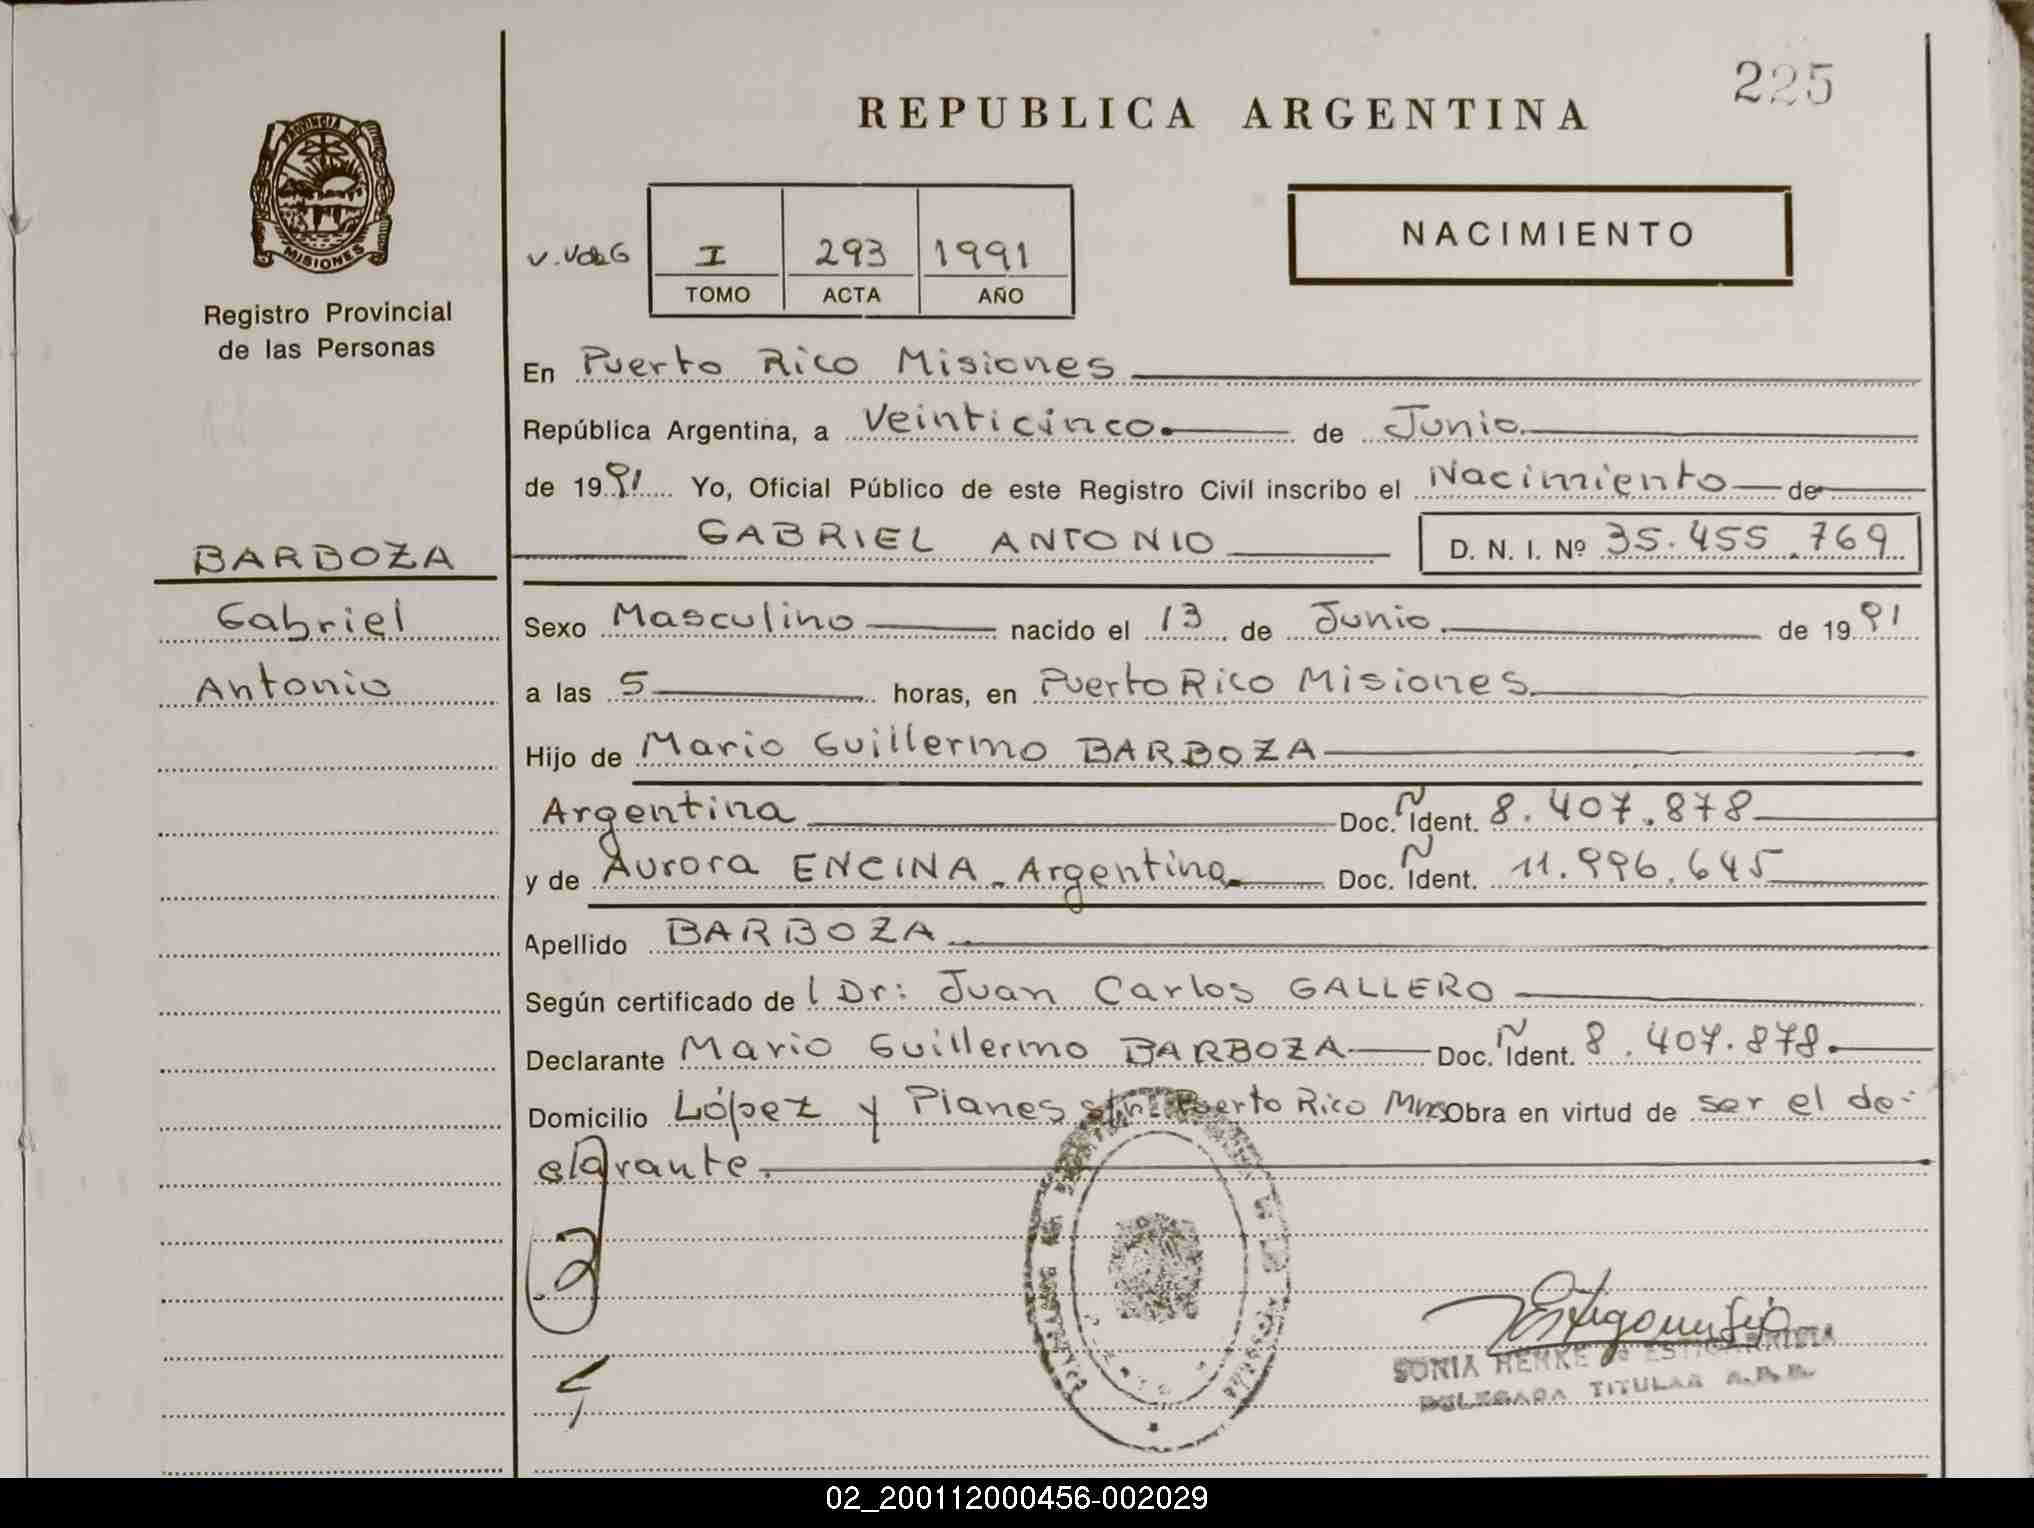 225
REPUBLICA ARGENTINA
PROVINCIA DE
MISIONES
Registro Provincial
de las Personas
NACIMIENTO
I 293 1991
TOMO ACTA AÑO
En Puerto Rico Misiones
República Argentina, a Veinticinco de Junio
de 1991 Yo, Oficial Público de este Registro Civil inscribo el Nacimiento de
GABRIEL ANTONIO D. N. I. Nº 35.455.769
BARBOZA
Gabriel
Antonio
Sexo Masculino nacido el 13 de Junio. de 1991
a las 5 horas, en Puerto Rico Misiones
Hijo de Mario Guillermo BARBOZA
Argentina Doc. Ñ Ident. 8.407.878
y de Aurora ENCINA - Argentina Doc. Ñ Ident. 11.996.645
Apellido BARBOZA
Según certificado de l Dr: Juan Carlos GALLERO
Declarante Mario Guillermo BARBOZA Doc. Ñ Ident. 8.407.878.
Domicilio López y Planes s/nº Puerto Rico Mnes Obra en virtud de ser el de-
clarante.
SONIA HENKE de ESTIGARRIBIA
DELEGADA TITULAR
02_200112000456-002029